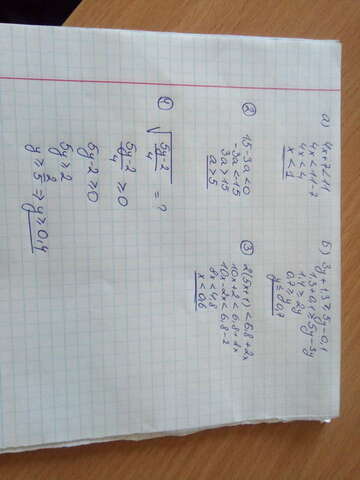 а) 4x+7<11
4x<11-7
4x<4
x<1
б) 3y+1,3≥5y-0,1
1,3+0,1≥5y-3y
1,4≥2y
0,7≥y
y≤0,7
② 15-3a<0
-3a<-15
3a>15
a>5
③ 2(5x+1)<6,8+2x
10x+2<6,8+2x
10x-2x<6,8-2
8x<4,8
x<0,6
④ √((5y-2)/4) = ?
(5y-2)/4 ≥0
5y-2≥0
5y≥2
y≥2/5 ⇒ y≥0,4